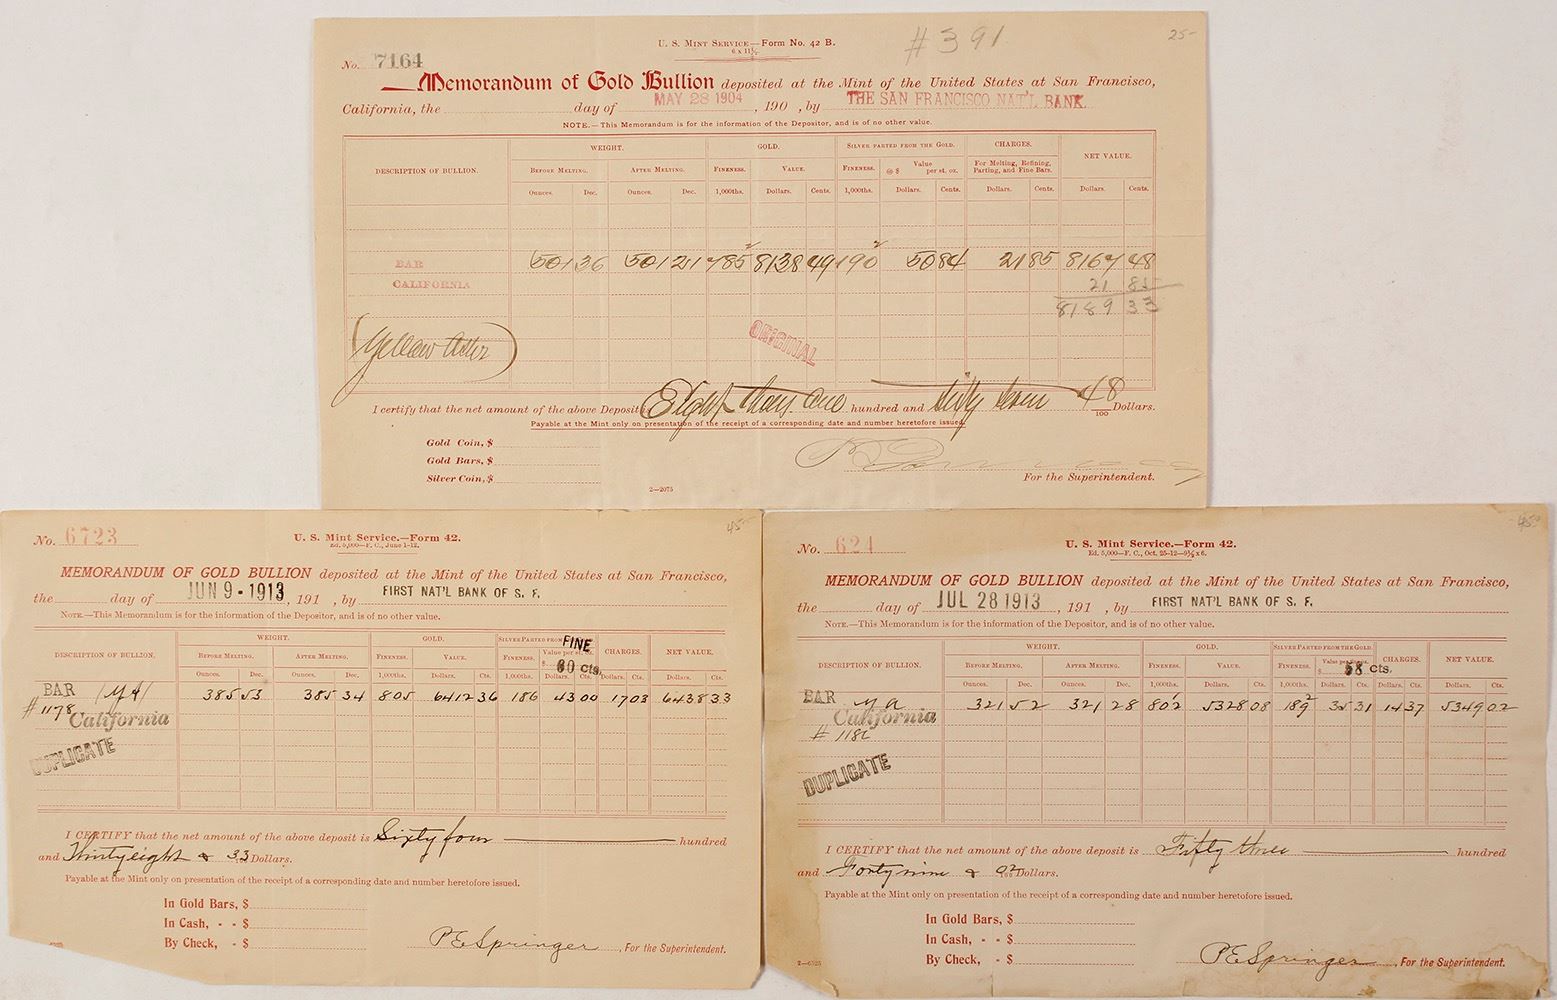 U. S. Mint Service—Form No. 42 B.
6 x 11½.
#391
25-
No. 7164
Memorandum of Gold Bullion deposited at the Mint of the United States at San Francisco,
California, the day of MAY 28 1904, 190 , by THE SAN FRANCISCO NAT'L BANK.
NOTE.—This Memorandum is for the information of the Depositor, and is of no other value.
DESCRIPTION OF BULLION. WEIGHT. GOLD. SILVER PARTED FROM THE GOLD. CHARGES. NET VALUE.
BEFORE MELTING. AFTER MELTING. FINENESS. VALUE. FINENESS. @ $ Value per st. oz. For Melting, Refining, Parting, and Fine Bars.
Ounces. Dec. Ounces. Dec. 1,000ths. Dollars. Cents. 1,000ths. Dollars. Cents. Dollars. Cents. Dollars. Cents.
BAR 501 36 501 21 785 2 8138 49 190 2 50 84 21 85 8167 48
CALIFORNIA 21 85
8189 33
(Yellow Aster)
ORIGINAL
I certify that the net amount of the above Deposit is Eight thous. One hundred and sixty seven 48/100 Dollars.
Payable at the Mint only on presentation of the receipt of a corresponding date and number heretofore issued.
Gold Coin, $
Gold Bars, $
Silver Coin, $
For the Superintendent.
2—2075
45-
No. 6723
U. S. Mint Service.—Form 42.
Ed. 5,000—F. C., June 1-12.
MEMORANDUM OF GOLD BULLION deposited at the Mint of the United States at San Francisco,
the day of JUN 9 - 1913, 191 , by FIRST NAT'L BANK OF S. F.
NOTE.—This Memorandum is for the information of the Depositor, and is of no other value.
DESCRIPTION OF BULLION. WEIGHT. GOLD. SILVER PARTED FROM FINE CHARGES. NET VALUE.
BEFORE MELTING. AFTER MELTING. FINENESS. VALUE. FINENESS. Value per st. oz. $ 60 cts.
Ounces. Dec. Ounces. Dec. 1,000ths. Dollars. Cts. 1,000ths. Dollars. Cts. Dollars. Cts. Dollars. Cts.
BAR (YA) 385 53 385 34 805 6412 36 186 43 00 17 03 6438 33
#1178 California
DUPLICATE
I CERTIFY that the net amount of the above deposit is Sixty four hundred
and Thirty eight & 33 Dollars.
Payable at the Mint only on presentation of the receipt of a corresponding date and number heretofore issued.
In Gold Bars, $
In Cash, - - $
By Check, - $
P E Springer, For the Superintendent.
45-
No. 624
U. S. Mint Service.—Form 42.
Ed. 5,000—F. C., Oct. 25-12—9½ x 6.
MEMORANDUM OF GOLD BULLION deposited at the Mint of the United States at San Francisco,
the day of JUL 28 1913, 191 , by FIRST NAT'L BANK OF S. F.
NOTE.—This Memorandum is for the information of the Depositor, and is of no other value.
DESCRIPTION OF BULLION. WEIGHT. GOLD. SILVER PARTED FROM THE GOLD. CHARGES. NET VALUE.
BEFORE MELTING. AFTER MELTING. FINENESS. VALUE. FINENESS. Value $ 58 cts.
Ounces. Dec. Ounces. Dec. 1,000ths. Dollars. Cts. 1,000ths. Dollars. Cts. Dollars. Cts. Dollars. Cts.
BAR YA 321 52 321 28 802 5328 08 189 2 35 31 14 37 5349 02
California
DUPLICATE
I CERTIFY that the net amount of the above deposit is Fifty three hundred
and Forty nine & 02/100 Dollars.
Payable at the Mint only on presentation of the receipt of a corresponding date and number heretofore issued.
In Gold Bars, $
In Cash, - - $
By Check, - $
P E Springer, For the Superintendent.